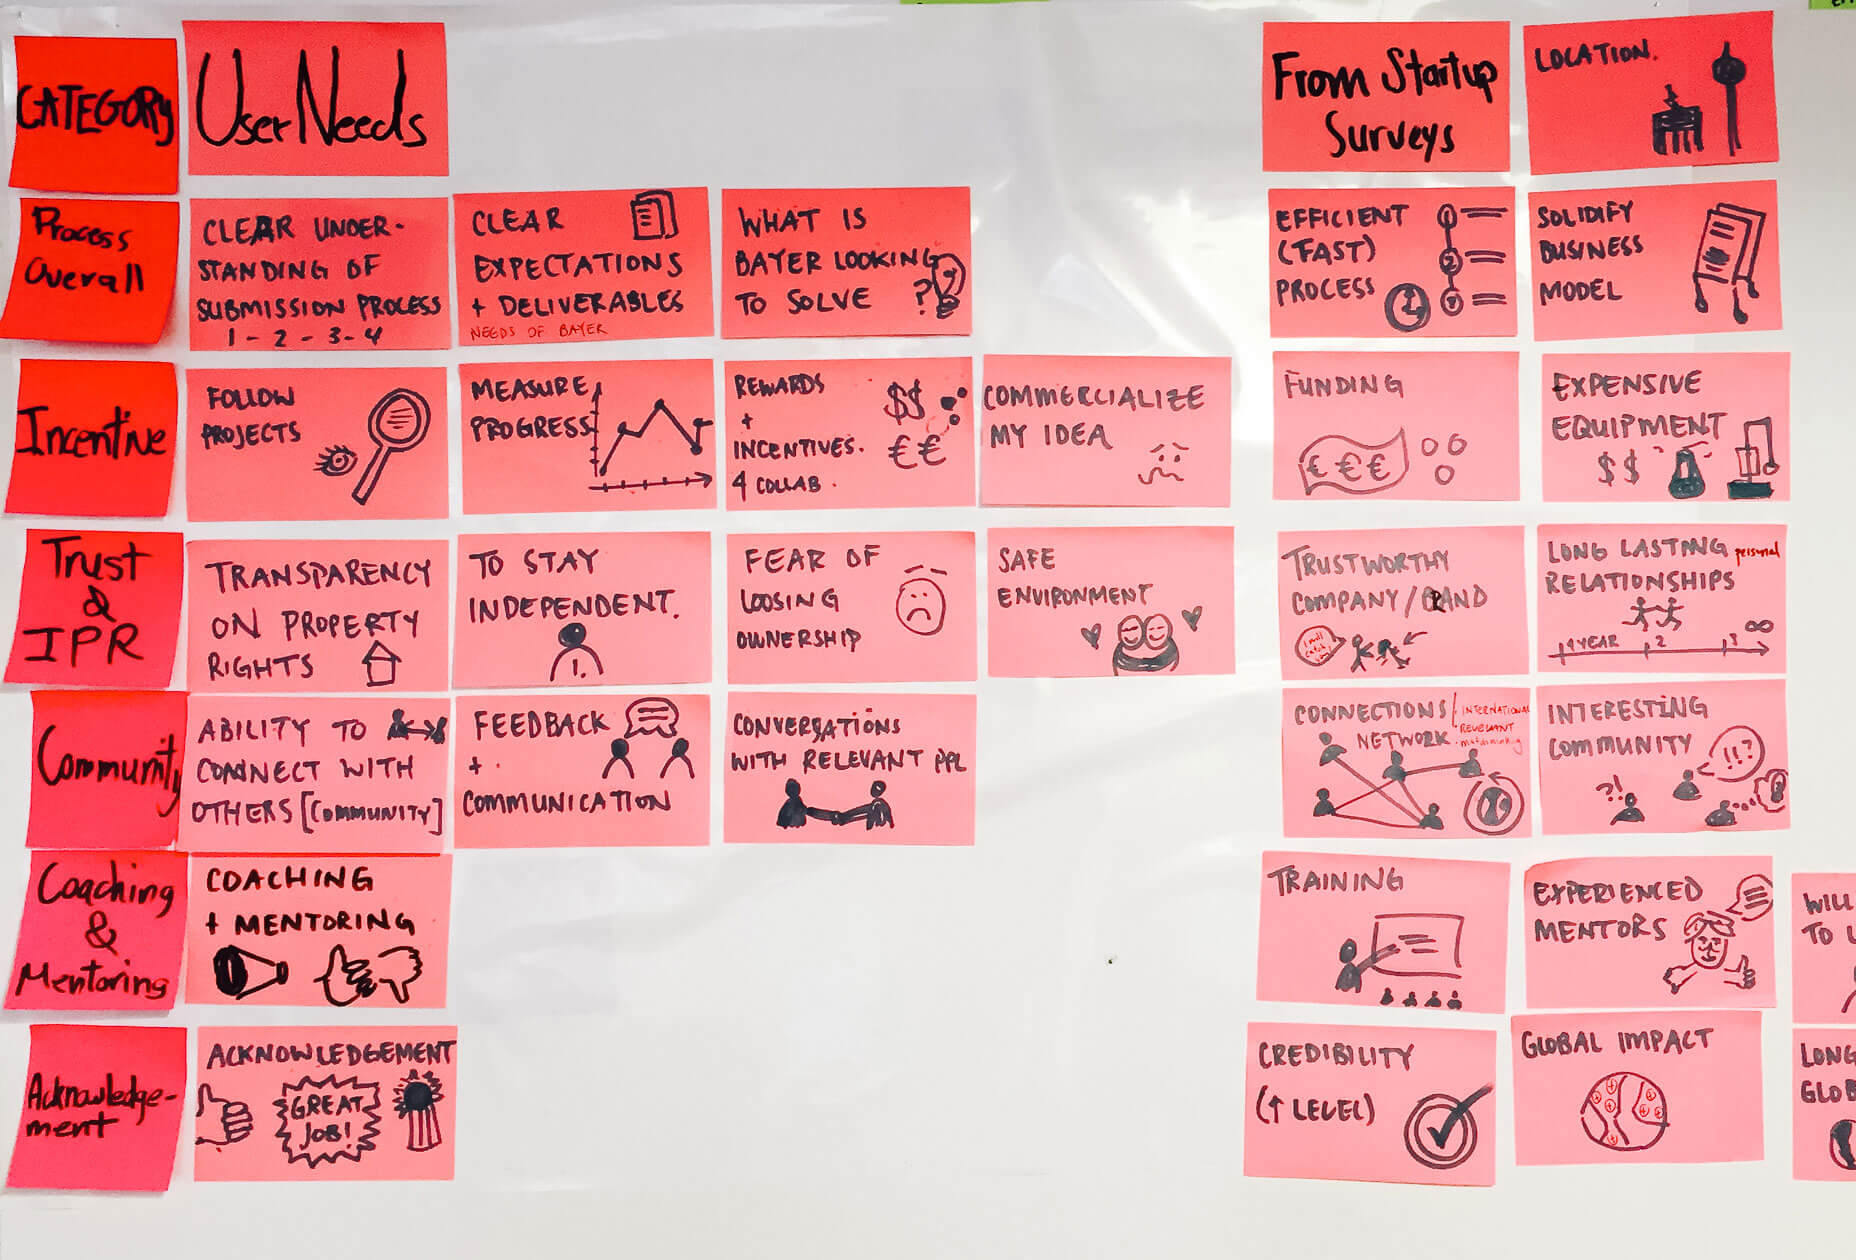 CATEGORY
User Needs
From Startup
Surveys
LOCATION.
Process
Overall
CLEAR UNDER-
STANDING OF
SUBMISSION PROCESS
1 - 2 - 3 - 4
CLEAR
EXPECTATIONS
+ DELIVERABLES
NEEDS OF BAYER
WHAT IS
BAYER LOOKING
TO SOLVE
?
EFFICIENT
(FAST)
PROCESS
1
2
SOLIDIFY
BUSINESS
MODEL
Incentive
FOLLOW
PROJECTS
MEASURE
PROGRESS
REWARDS
+
INCENTIVES.
4 COLLAB.
$$
€€
COMMERCIALIZE
MY IDEA
FUNDING
€€€
EXPENSIVE
EQUIPMENT
$$
Trust
&
IPR
TRANSPARENCY
ON PROPERTY
RIGHTS
TO STAY
INDEPENDENT.
1.
FEAR OF
LOOSING
OWNERSHIP
SAFE
ENVIRONMENT
TRUSTWORTHY
COMPANY/BRAND
I will
catch
LONG LASTING personal
RELATIONSHIPS
1 YEAR 2 3 ∞
Community
ABILITY TO
CONNECT WITH
OTHERS [COMMUNITY]
FEEDBACK
+
COMMUNICATION
CONVERSATIONS
WITH RELEVANT PPL
CONNECTIONS/
NETWORK
INTERNATIONAL
RELEVANT
matchmaking
INTERESTING
COMMUNITY
!!?
?!
Coaching
&
Mentoring
COACHING
+ MENTORING
TRAINING
EXPERIENCED
MENTORS
WILL
TO
Acknowledge-
ment
ACKNOWLEDGEMENT
GREAT
JOB!
CREDIBILITY
(↑ LEVEL)
GLOBAL IMPACT
LONG
GLOB